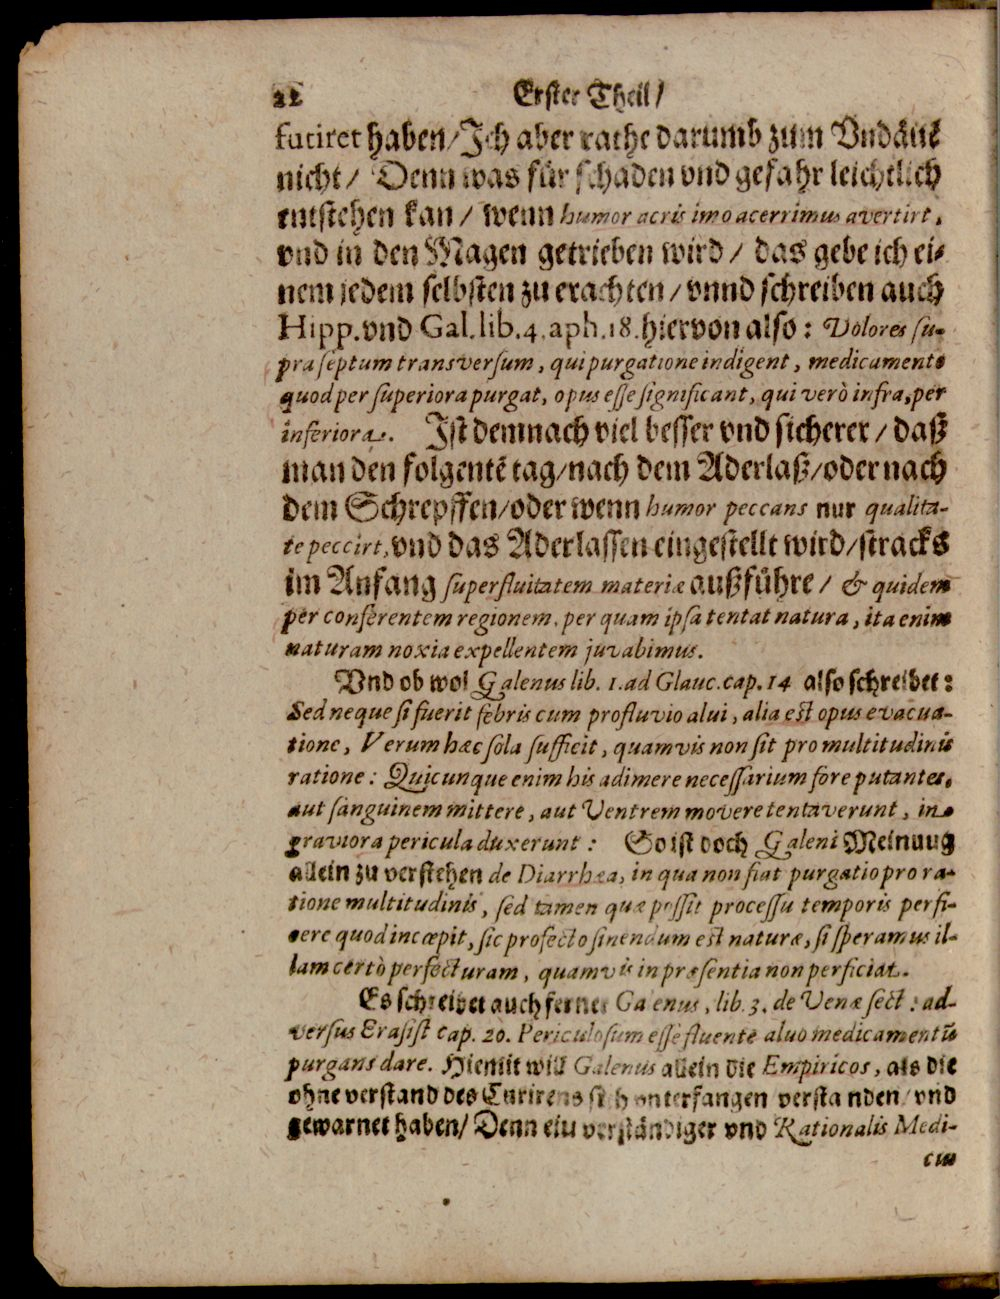 22 Erster Theil /
futiret haben / Ich aber rathe darumb zum Vndäuē
nicht / Denn was für schaden vnd gefahr leichtlich
entstehen kan / wenn humor acris imo acerrimus avertirt,
vnd in den Magen getrieben wird / das gebe ich ei-
nem jedem selbsten zu erachten / vnnd schreiben auch
Hipp. vnd Gal. lib. 4. aph. 18. hiervon also: Dolores su-
pra septum transversum, qui purgatione indigent, medicamento
quod per superiora purgat, opus esse significant, qui verò infra, per
inferiora. Ist demnach viel besser vnd sicherer / daß
man den folgentē tag / nach dem Aderlaß / oder nach
dem Schrepffen / oder wenn humor peccans nur qualita-
te peccirt, vnd das Aderlassen eingestellt wird / stracks
im Anfang superfluitatem materiæ außführe / & quidem
per conferentem regionem, per quam ipsa tentat natura, ita enim
naturam noxia expellentem juvabimus.
Vnd ob wol Galenus lib. 1. ad Glauc. cap. 14 also schreibet:
Sed neque si fuerit febris cum profluvio alui, alia est opus evacua-
tione, Verum hæc sola sufficit, quamvis non sit pro multitudinis
ratione: Quicunque enim his adimere necessarium fore putantes,
aut sanguinem mittere, aut Ventrem movere tentaverunt, in
graviora pericula duxerunt: So ist doch Galeni Meinuug
allein zu verstehen de Diarrhæa, in qua non fiat purgatio pro ra-
tione multitudinis, sed tamen quæ possit processu temporis perfi-
cere quod incœpit, sic profecto sinendum est naturæ, si speramus il-
lam certò perfecturam, quamvis in præsentia non perficiat.
Es schreibet auch ferner Galenus, lib. 3. de Venæ sect: ad-
versus Erasist cap. 20. Periculosum esse fluente aluo medicamentū
purgans dare. Hiemit will Galenus allein die Empiricos, als die
ohne verstand des Curirens sich vnterfangen verstanden / vnd
gewarnet haben / Denn ein verständiger vnd Rationalis Medi-
cus